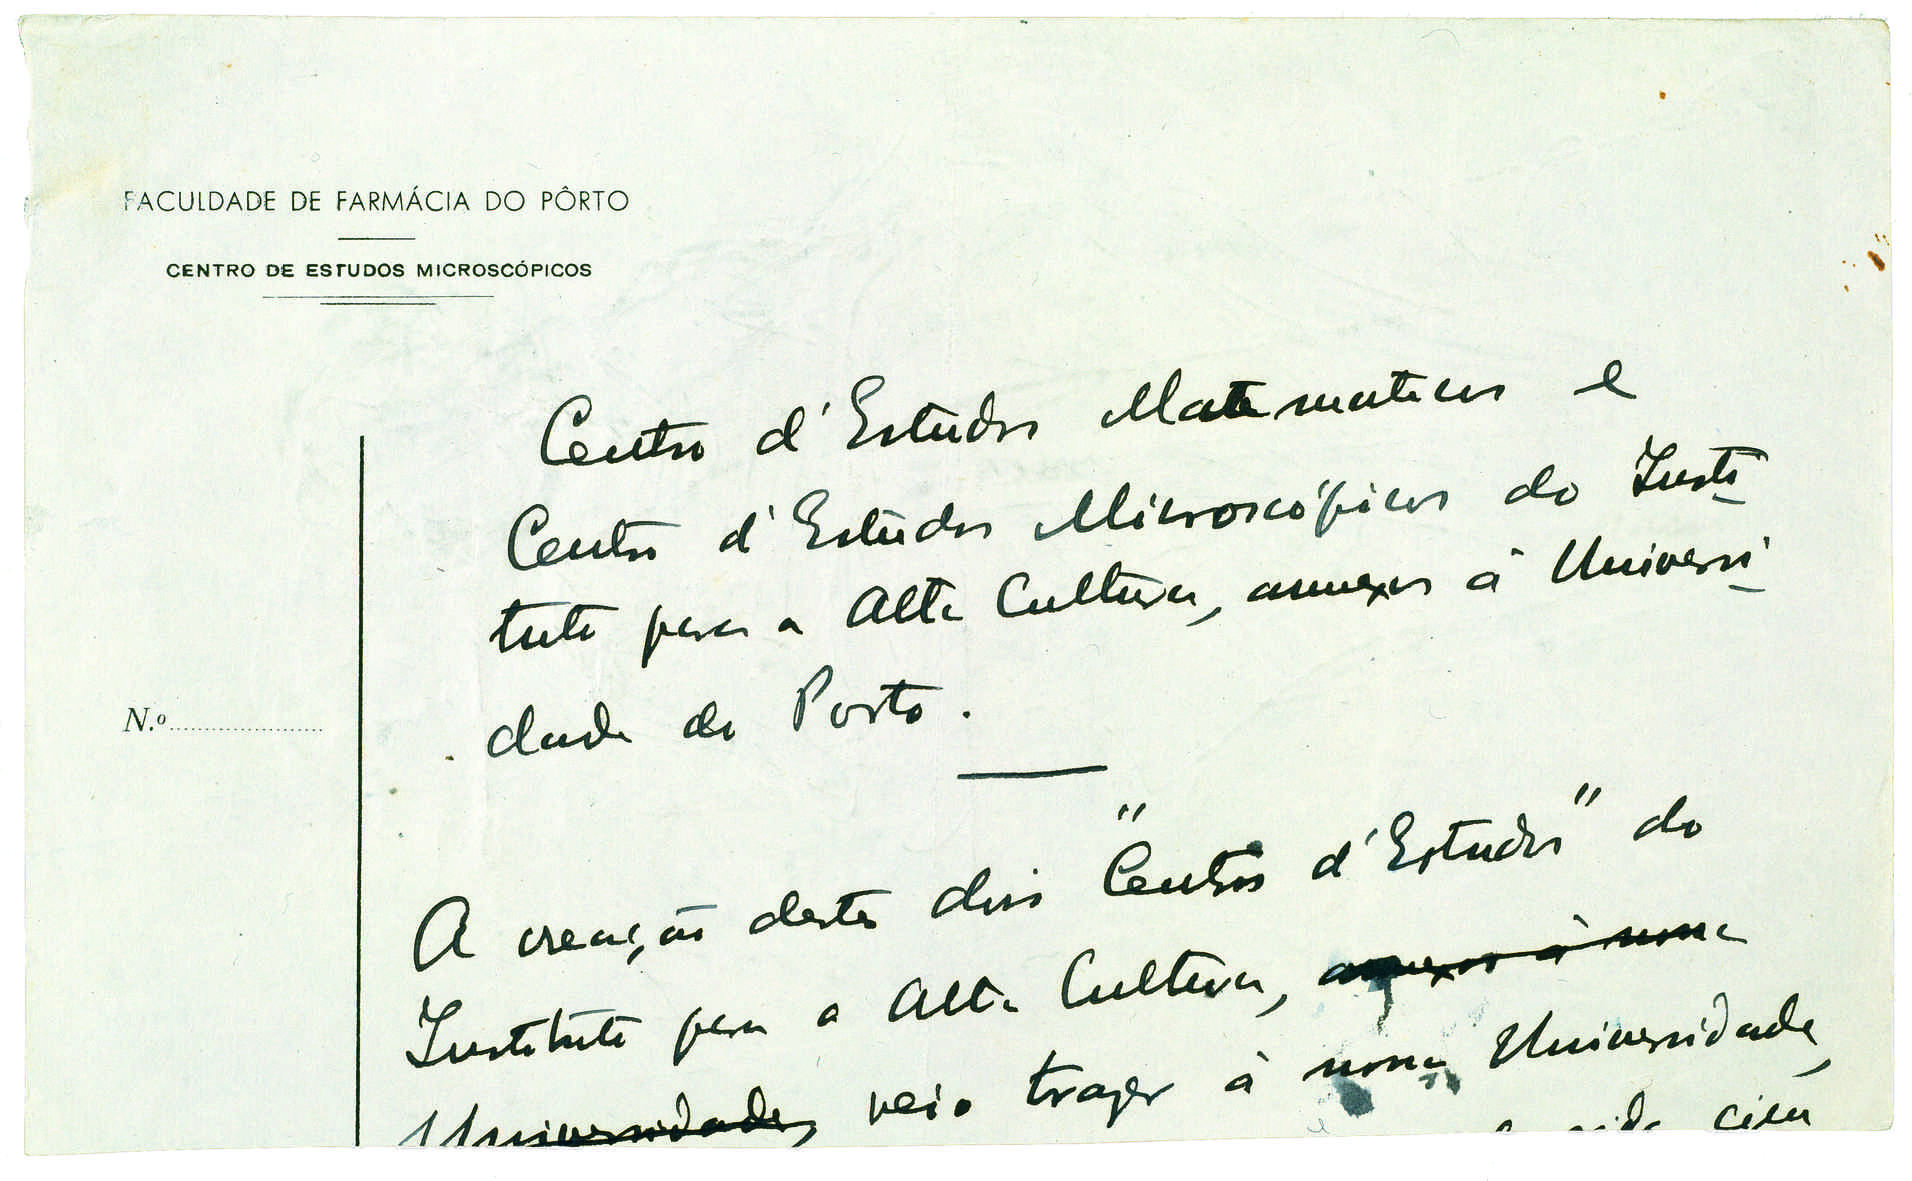 FACULDADE DE FARMÁCIA DO PÔRTO
CENTRO DE ESTUDOS MICROSCÓPICOS
Centro d'Estudos Matematicos e
Centro d'Estudos Microscópicos do Insti-
tuto para a Alta Cultura, anexos à Universi-
dade do Porto.
N.º
A creação destes dois "Centros d'Estudos" do
Instituto para a Alta Cultura, anexos à nossa
Universidade, veio trazer à nossa Universidade,